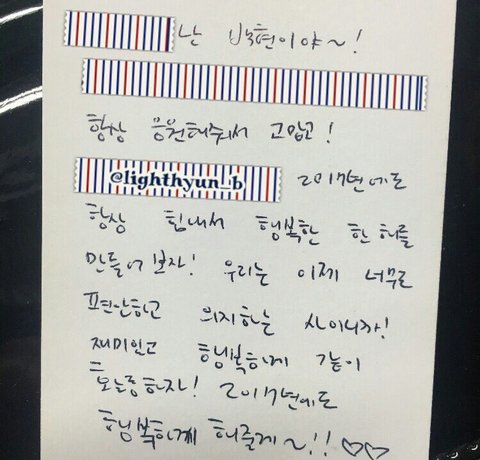 난 백현이야~!
항상 응원해줘서 고맙고!
@lighthyun_b 2017년에도
항상 힘내서 행복한 한 해를
만들어보자! 우리는 이제 너무도
편안하고 의지하는 사이니까!
재미있고 행복하게 같이
2017년에도
행복하게 해줄게~!! ♡♡